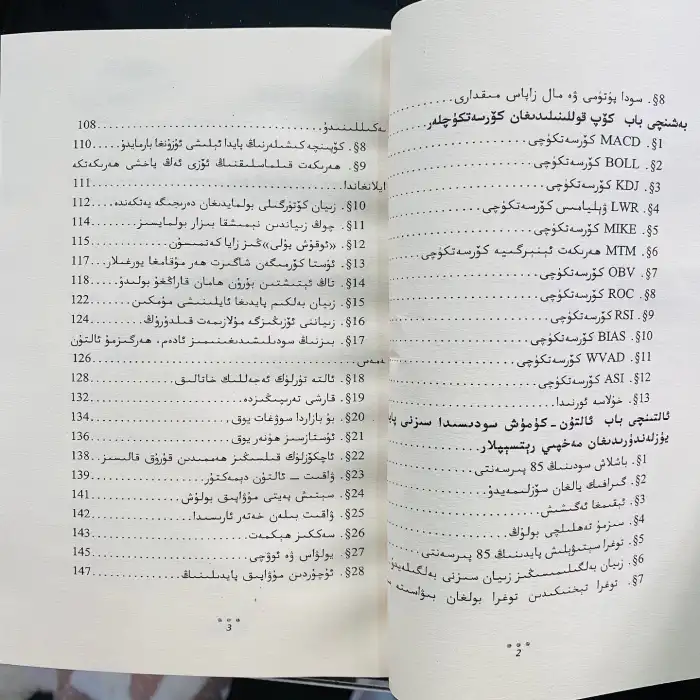 §8. سودا پۈتۈمى ۋە مال زاپاس مىقدارى
بەشىنچى باب كۆپ قوللىنىلىدىغان كۆرسەتكۈچلەر
§1. MACD كۆرسەتكۈچى
§2. BOLL كۆرسەتكۈچى
§3. KDJ كۆرسەتكۈچى
§4. LWR ۋىليامىس كۆرسەتكۈچى
§5. MIKE كۆرسەتكۈچى
§6. MTM ھەرىكەت ئېنېرگىيە كۆرسەتكۈچى
§7. OBV كۆرسەتكۈچى
§8. ROC كۆرسەتكۈچى
§9. RSI كۆرسەتكۈچى
§10. BIAS كۆرسەتكۈچى
§11. WVAD كۆرسەتكۈچى
§12. ASI كۆرسەتكۈچى
§13. خۇلاسە ئورنىدا
ئالتىنچى باب ئالتۇن - كۈمۈش سودىسىدا سىزنى
يۈزلەندۈرىدىغان مەخپىي رېتسېپلار
§1. باشلاش سودىنىڭ 85 پىرسەنتى
§2. گىرافىك يالغان سۆزلىمەيدۇ
§3. ئېقىمغا ئەگىشىش
§4. سىزمۇ تەھلىلچى بولۇڭ
§5. توغرا سېتىۋېلىش پايدىنىڭ 85 پىرسەنتى
§6. زىيان بەلگىلىمىسىڭىز زىيان سىزنى بەلگىلەيدۇ
§7. توغرا تېخنىكىدىن توغرا بولغان بىۋاسىتە
2
108
§8. كۆپىنچە كىشىلەرنىڭ پايدا ئېلىشى ئۇزۇنغا بارمايدۇ.....110
§9. ھەرىكەت قىلماسلىقنىڭ ئۆزى ئەڭ ياخشى ھەرىكەتكە
ايلانغاندا.....111
§10. زىيان كۆتۈرگىلى بولمايدىغان دەرىجىگە يەتكەندە.....112
§11. چوڭ زىياندىن نېمىشقا بىزار بولمايسىز.....114
§12. «ئوقۇش پۇلى»ڭىز زايا كەتمىسۇن.....115
§13. ئۇستا كۆرمىگەن شاگىرت ھەر مۇقامغا يورغىلار.....117
§14. تاڭ ئېتىشتىن بۇرۇن ھامان قاراڭغۇ بولىدۇ.....118
§15. زىيان بەلكىم پايدىغا ئايلىنىشى مۇمكىن.....122
§16. زىياننى ئۆزىڭىزگە مۇلازىمەت قىلدۇرۇڭ.....124
§17. بىزنىڭ سودىلىشىدىغىنىمىز ئادەم، ھەرگىزمۇ ئالتۇن
ەمەس.....126
§18. ئالتە تۈرلۈك ئەجەللىك خاتالىق.....128
§19. قارشى تەرىپىڭىزدە.....132
§20. بۇ بازاردا سوۋغات يوق.....134
§21. ئۇستازسىز ھۈنەر يوق.....136
§22. ئاچكۆزلۈك قىلسىڭىز ھەممىدىن قۇرۇق قالىسىز.....138
§23. ۋاقىت ــ ئالتۇن دېمەكتۇر.....139
§24. سېتىش پەيتى مۇۋاپىق بولۇش.....141
§25. ۋاقىت بىلەن خەتەر ئارىسىدا.....142
§26. سەككىز ھېكمەت.....143
§27. يولۋاس ۋە ئوۋچى.....145
§28. ئۇچۇردىن مۇۋاپىق پايدىلىنىڭ.....147
3